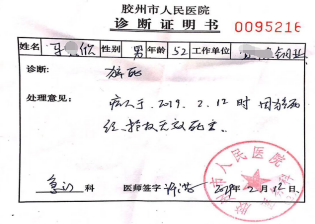 胶州市人民医院
诊断证明书 0095216
姓名 欣 性别 男 年龄 52 工作单位
诊断:
猝死
处理意见: 病人于2019.2.12时因猝死
经抢救无效死亡.
急诊科 医师签字 2019年2月12日
胶州市人民医院